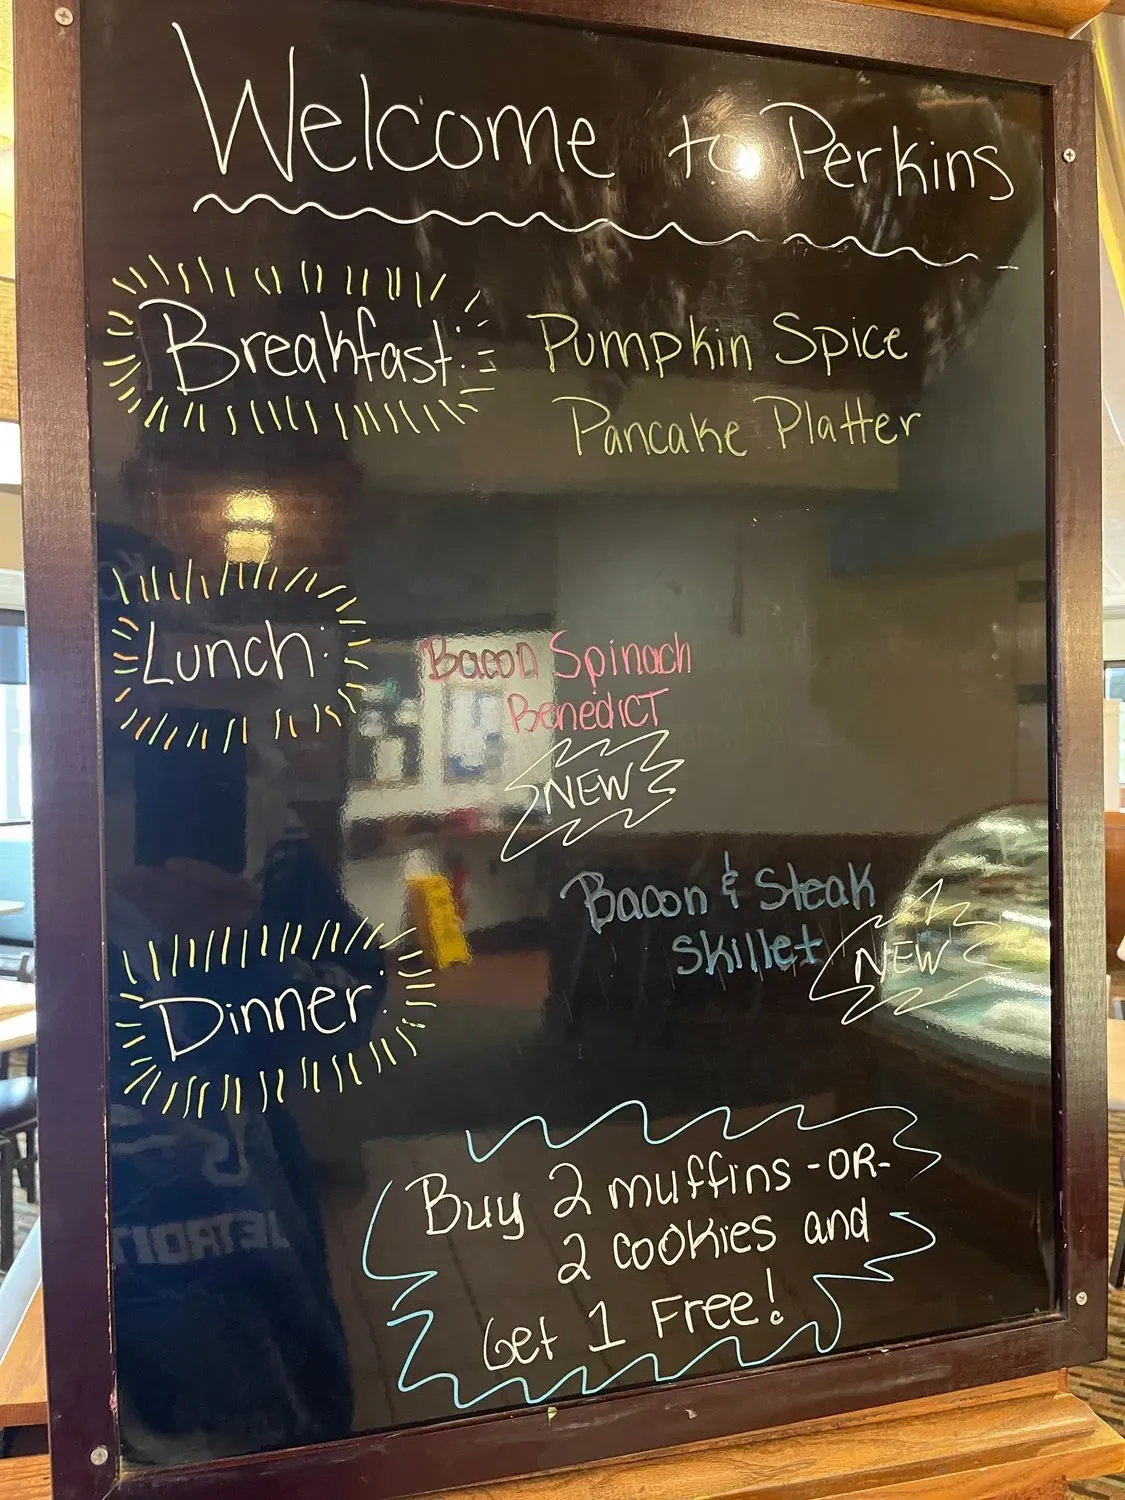 Welcome to Perkins
Breakfast: Pumpkin Spice
Pancake Platter
Lunch: Bacon Spinach
BenedicT
NEW
Bacon & Steak
Skillet NEW
Dinner:
Buy 2 muffins -OR-
2 cookies and
Get 1 Free!
DETROIT